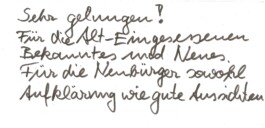 Sehr gelungen!
Für die Alt-Eingesessenen
Bekanntes und Neues.
Für die Neubürger sowohl
Aufklärung wie gute Aussichten